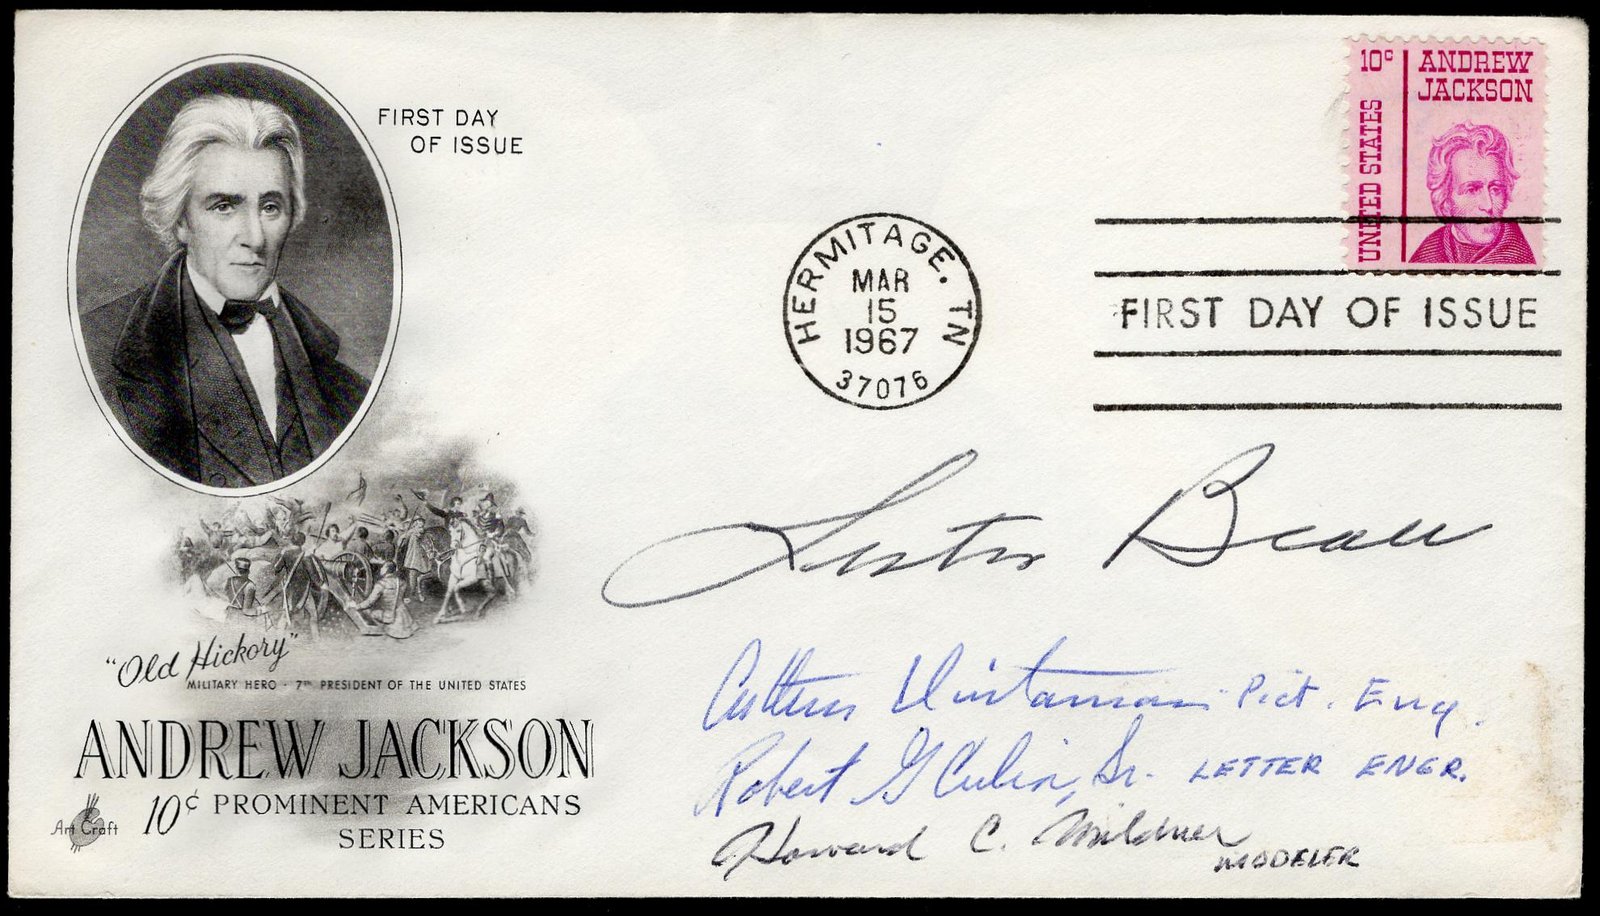 FIRST DAY
OF ISSUE
10c ANDREW
JACKSON
UNITED STATES
HERMITAGE, TN
MAR
15
1967
37076
FIRST DAY OF ISSUE
Lester Beall
"Old Hickory"
MILITARY HERO · 7TH PRESIDENT OF THE UNITED STATES
ANDREW JACKSON
10¢ PROMINENT AMERICANS
SERIES
Art Craft
Pict. Eng.
Robert G Culin, Sr. LETTER ENGR.
Howard C. Mildner
MODELER